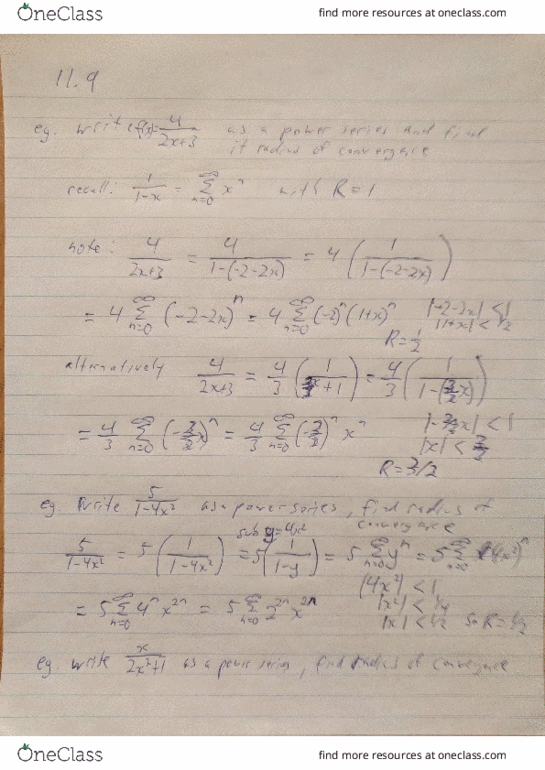 OneClass
find more resources at oneclass.com
11.9
eg. write f(x)= 4/(2x+3) as a power series and find
it radius of convergence
recall: 1/(1-x) = ∑_{n=0}^∞ x^n with R=1
note: 4/(2x+3) = 4/(1-(-2-2x)) = 4 (1/(1-(-2-2x)))
= 4 ∑_{n=0}^∞ (-2-2x)^n = 4 ∑_{n=0}^∞ (-2)^n (1+x)^n |-2-2x| < 1
|1+x| < 1/2
R=1/2
alternatively 4/(2x+3) = 4/3 (1/( x+1)) = 4/3 (1/(1-( x)))
= 4/3 ∑_{n=0}^∞ ( x)^n = 4/3 ∑_{n=0}^∞ ( )^n x^n |- x| < 1
|x| <
R=3/2
eg. Write 5/(1-4x²) as a power series, find radius of
convergence
sub y=4x²
5/(1-4x²) = 5 (1/(1-4x²)) = 5(1/(1-y)) = 5 ∑_{n=0}^∞ y^n = 5 ∑_{n=0}^∞ (4x²)^n
|4x²| < 1
= 5 ∑_{n=0}^∞ 4^n x^{2n} = 5 ∑_{n=0}^∞ 2^{2n} x^{2n} |x²| < 1/4
|x| < 1/2 so R=1/2
eg. write x/(2x²+1) as a power series, find radius of convergence
OneClass
find more resources at oneclass.com